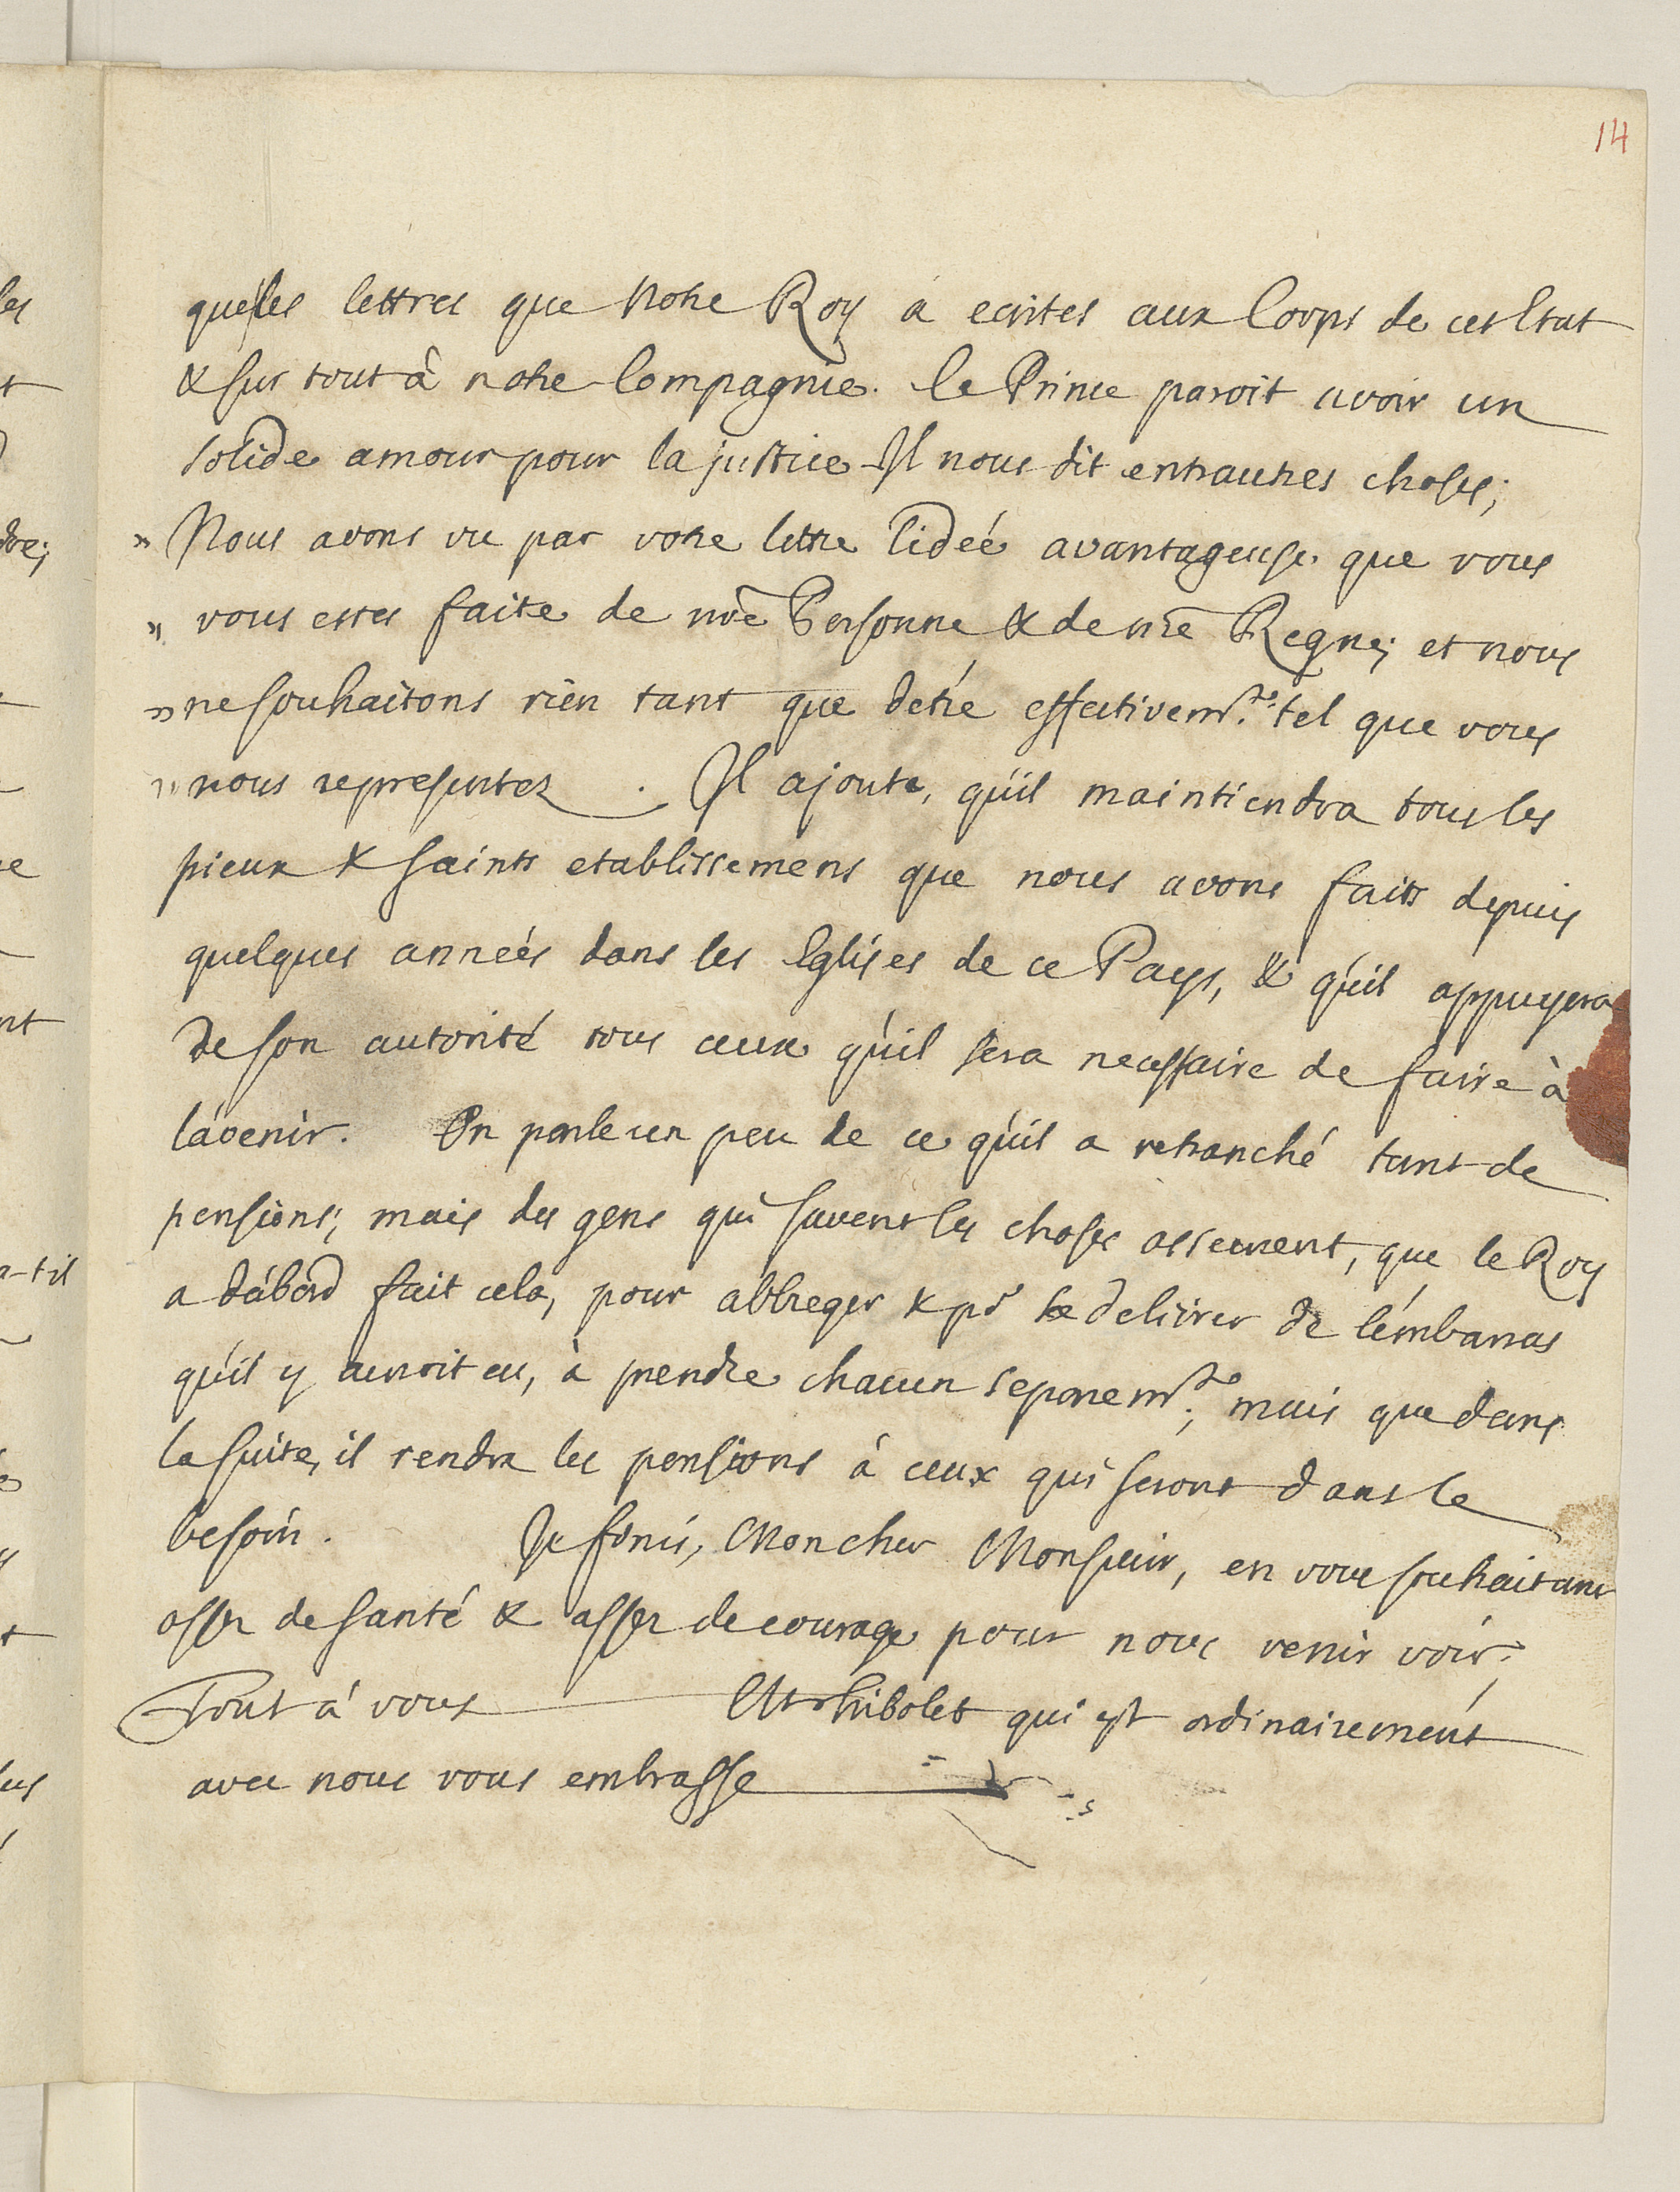 14
que les lettres que Notre Roy a ecrites aux Corps de cet Etat
& sur tout à notre Compagnie. Ce Prince paroit avoir un
solide amour pour la justice Il nous dit entrautres choses;
» Nous avons vu par votre lettre lidéé avantageuse que vous
» vous estes faite de nr̄e Personne & de nr̄e Regne; et nous
» ne souhaitons rien tant que detre effectivemt. tel que vous
» nous representez. Il ajoute, qu'il maintiendra tous les
pieux & saints etablissemens que nous avons faits depuis
quelques annéés dans les Eglises de ce Pays, & qu'il appuyera
de son autorité tous ceux qu'il sera necessaire de faire à
l'avenir. On parle un peu de ce qu'il a retranché tant de
pensions; mais des gens qui savent les choses asseurent, que le Roy
a d'abord fait cela, pour abbreger & pr se delivrer de l'émbarras
qu'il y auroit eu, à prendre chacun separemt.; mais que dans
la suite, il rendra les pensions à ceux qui seront dans le
besoin. Je finis, Mon cher Monsieur, en vous souhaitant
assez de santé & assez de courage pour nous venir voir;
Tout à vous Mr Chibolet qui est ordinairement
avec nous vous embrasse
les
t
dre;
nt
a-t-il